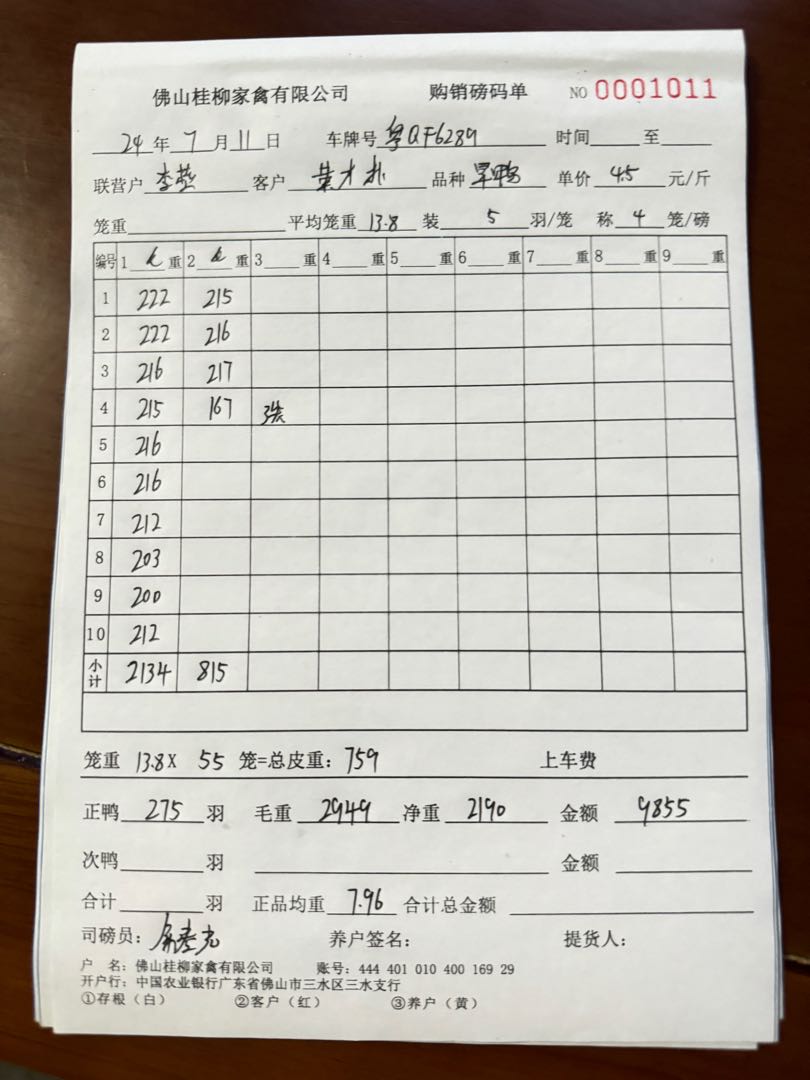 佛山桂柳家禽有限公司 购销磅码单 NO 0001011
24 年 7 月 11 日 车牌号 粤QF6289 时间 至
联营户 李燕 客户 叶才 品种 旱鸭 单价 4.5 元/斤
笼重 平均笼重 13.8 装 5 羽/笼 称 4 笼/磅
编号 1 重 2 重 3 重 4 重 5 重 6 重 7 重 8 重 9 重
1 222 215
2 222 216
3 216 217
4 215 167 3笼
5 216
6 216
7 212
8 203
9 200
10 212
小计 2134 815
笼重 13.8 X 55 笼=总皮重: 759 上车费
正鸭 275 羽 毛重 2949 净重 2190 金额 9855
次鸭 羽 金额
合计 羽 正品均重 7.96 合计总金额
司磅员: 养户签名: 提货人:
户 名: 佛山桂柳家禽有限公司 账号: 444 401 010 400 169 29
开户行: 中国农业银行广东省佛山市三水区三水支行
①存根(白) ②客户(红) ③养户(黄)